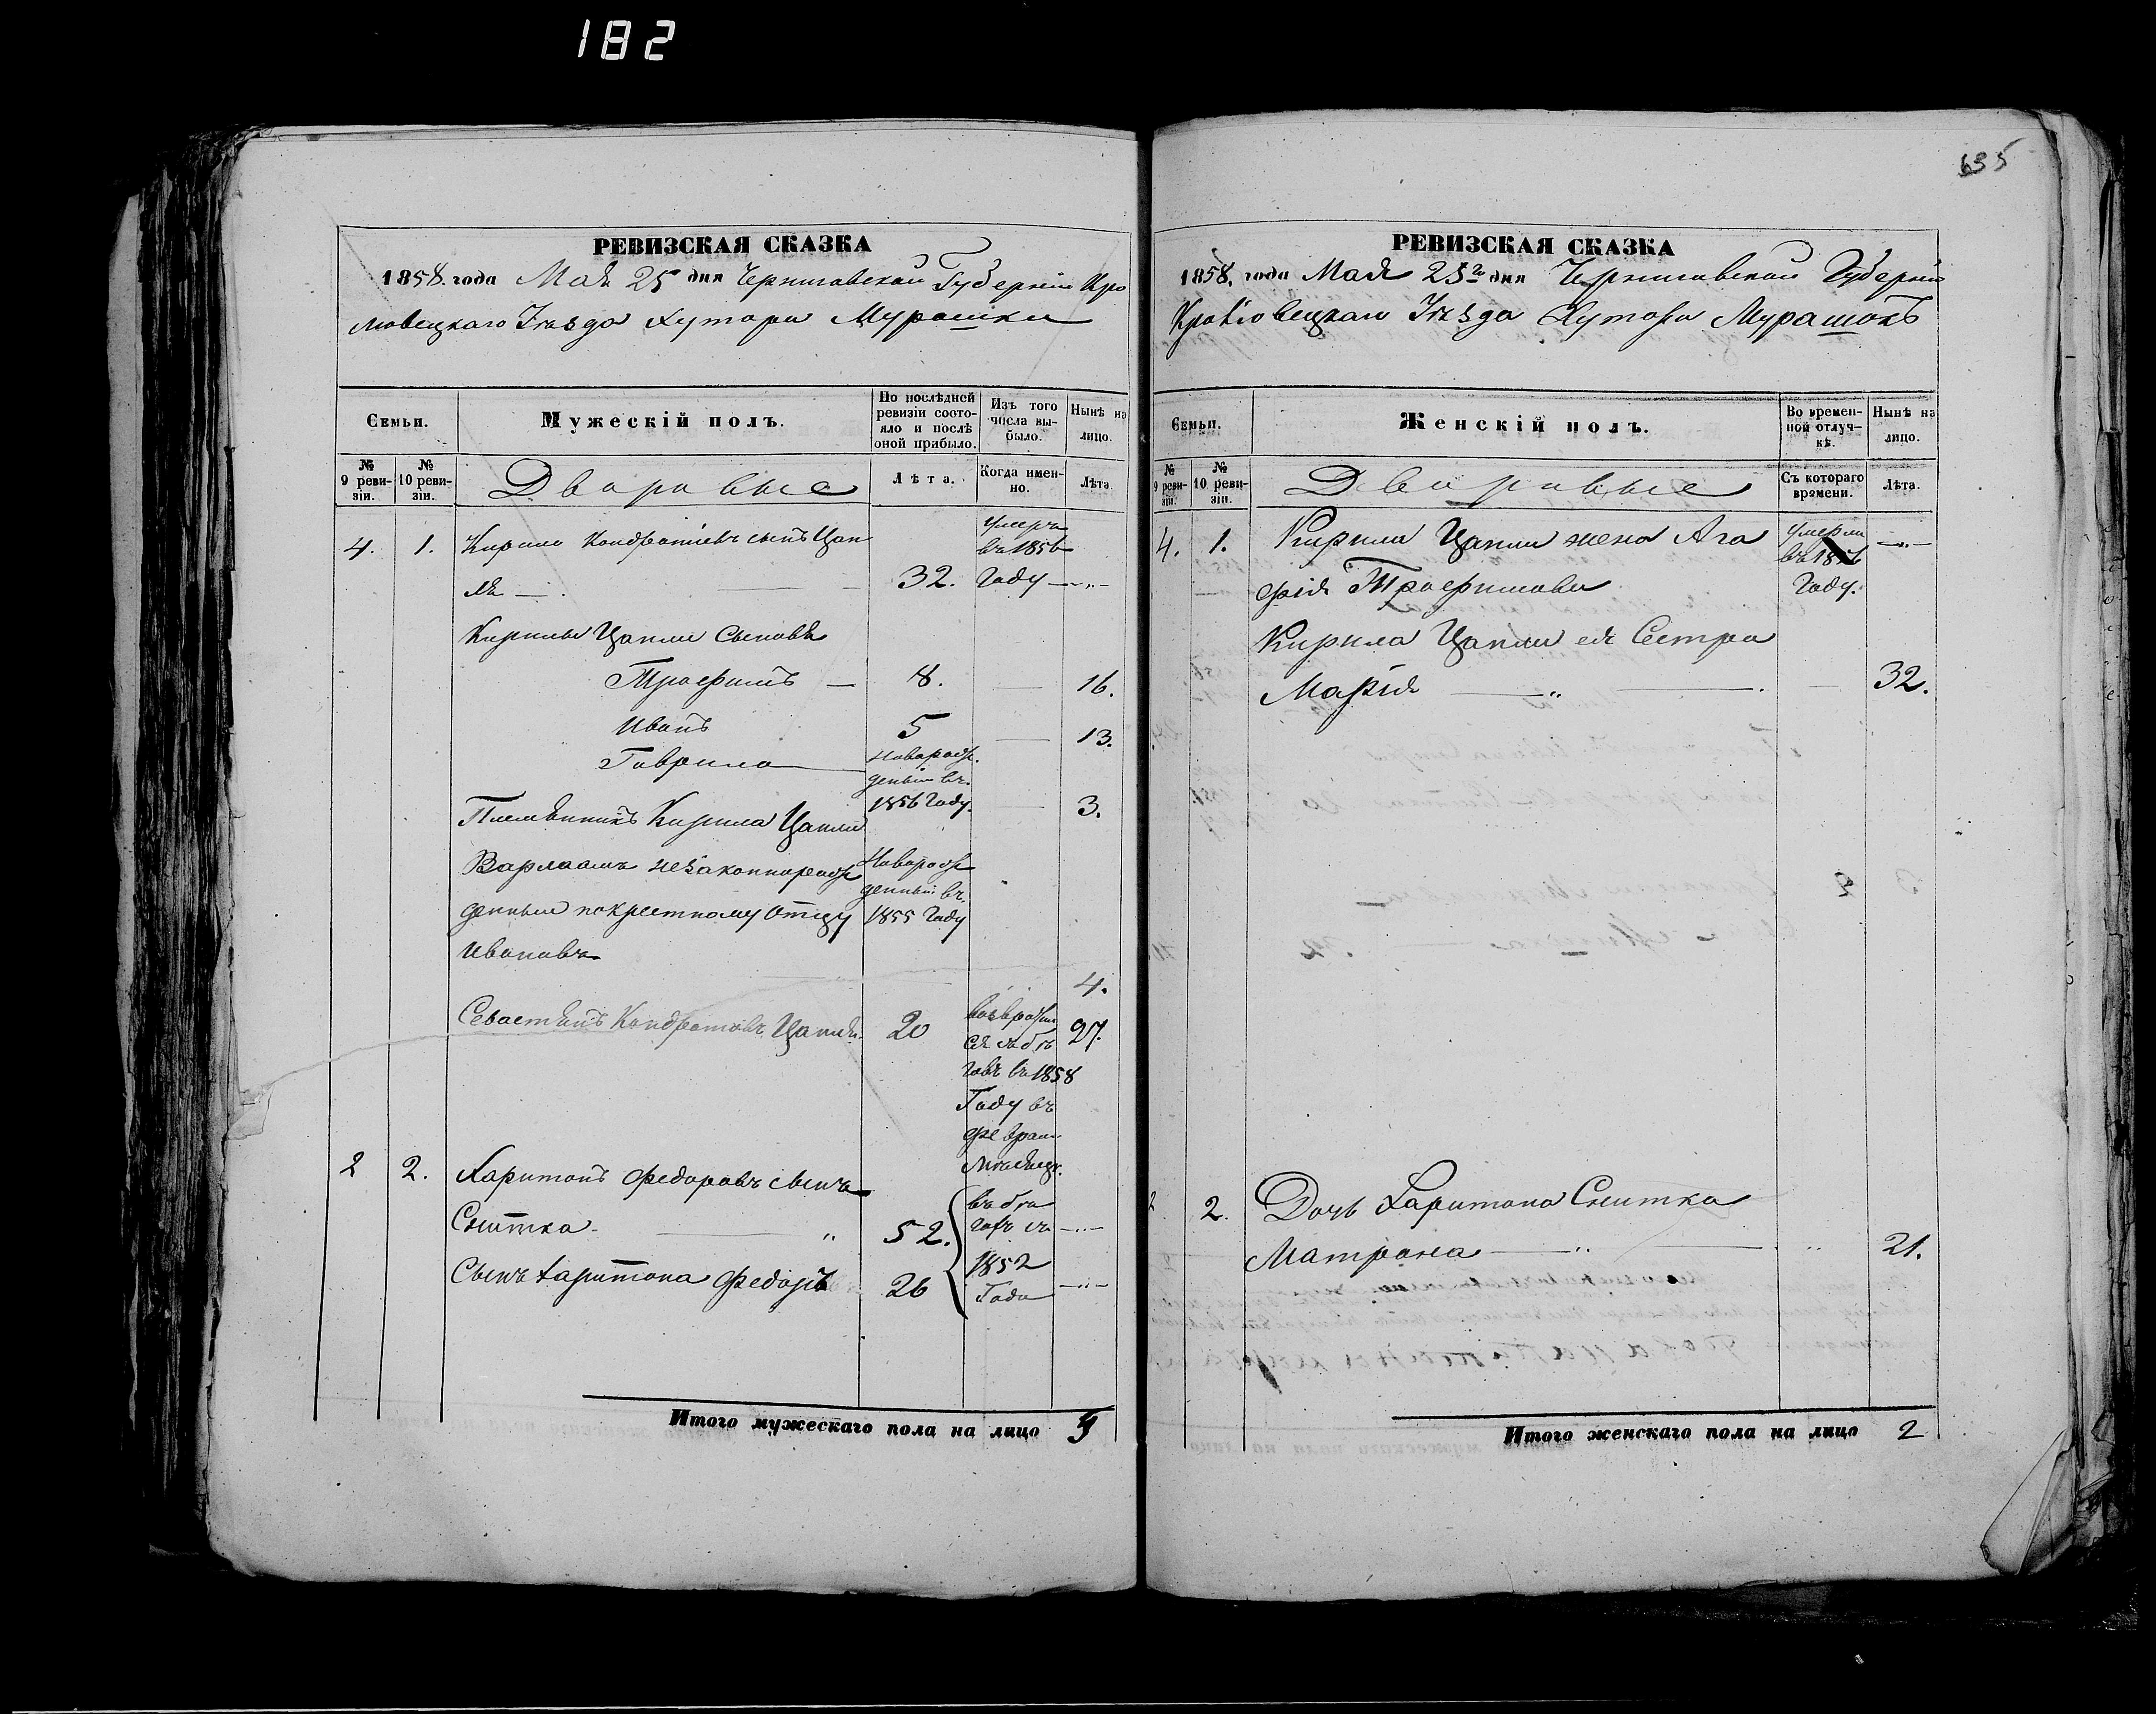 182
РЕВИЗСКАЯ СКАЗКА
1858. года Мая 25 дня Черниговской Губерніи Кро
левецкаго Уѣзда Хутора Мурашки
Семьи.
Мужескій полъ.
По послѣдней ревизіи состояло и послѣ оной прибыло.
Изъ того числа выбыло.
Нынѣ на лицо.
№ 9 ревизіи.
№ 10 ревизіи.
Дворовые
Лѣта.
Когда именно.
Лѣта.
4. 1. Кирило Кондратіевъ сынъ Цап
ля — 32.
Умеръ
въ 1856
Году —„—
Кирилы Цапли Сыновья
Трофимъ — 8. — 16.
Иванъ 5 — 13.
Гаврило
Новорож
денный въ
1856 Году. — 3.
Племянникъ Кирила Цапли
Варлаамъ незаконнорож
денный покрестному отцу
Ивановъ
Новорож
денный въ
1855 Году
4.
Севастіянъ Кондратовъ Цапля 20 27.
возврати
ся изъ бѣ
говъ въ 1858
Году въ
Феврал
Мѣсяцѣ.
2 2. Харитонъ Федоровъ сынъ
Снитка — „ 52. —„—
Сынъ Харитона Федоръ 26 —„—
въ бѣ
гахъ съ
1852
Года
Итого мужескаго пола на лицо 5
635
РЕВИЗСКАЯ СКАЗКА
1858. года Мая 25го дня Черниговской Губерніи
Кролевецкаго Уѣзда Хутора Мурашокъ
Семьи.
Женскій полъ.
Во временной отлучкѣ.
Нынѣ на лицо.
№ 9 ревизіи.
№ 10 ревизіи.
Дворовые
Съ котораго времени.
Лѣта.
4. 1. Кирила Цапли жена Ага
фія Трофимова
Умерла
въ 1856
Году.
—„—
Кирила Цапли ея Сестра
Марія — „ — 32.
2 2. Дочь Харитона Снитка
Матрона — „ — „ 21.
Итого женскаго пола на лицо 2